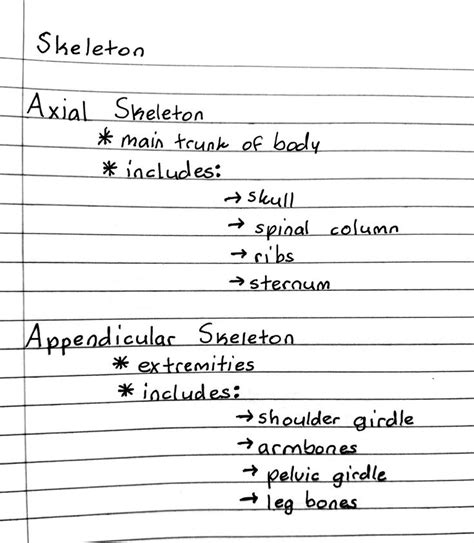 Skeleton
Axial Skeleton
* main trunk of body
* includes:
→ skull
→ spinal column
→ ribs
→ sternum
Appendicular Skeleton
* extremities
* includes:
→ shoulder girdle
→ armbones
→ pelvic girdle
→ leg bones